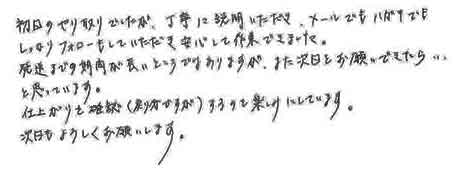 初回のやり取りでしたが、丁寧に説明いただき、メールでもハガキでも
しっかりフォローもしていただき安心して作業できました。
発送までの期間が長いところではありますが、また次回とお願いできたらいい
と思っています。
仕上がりを確認(余分ですが)するのを楽しみにしています。
次回もよろしくお願いします。